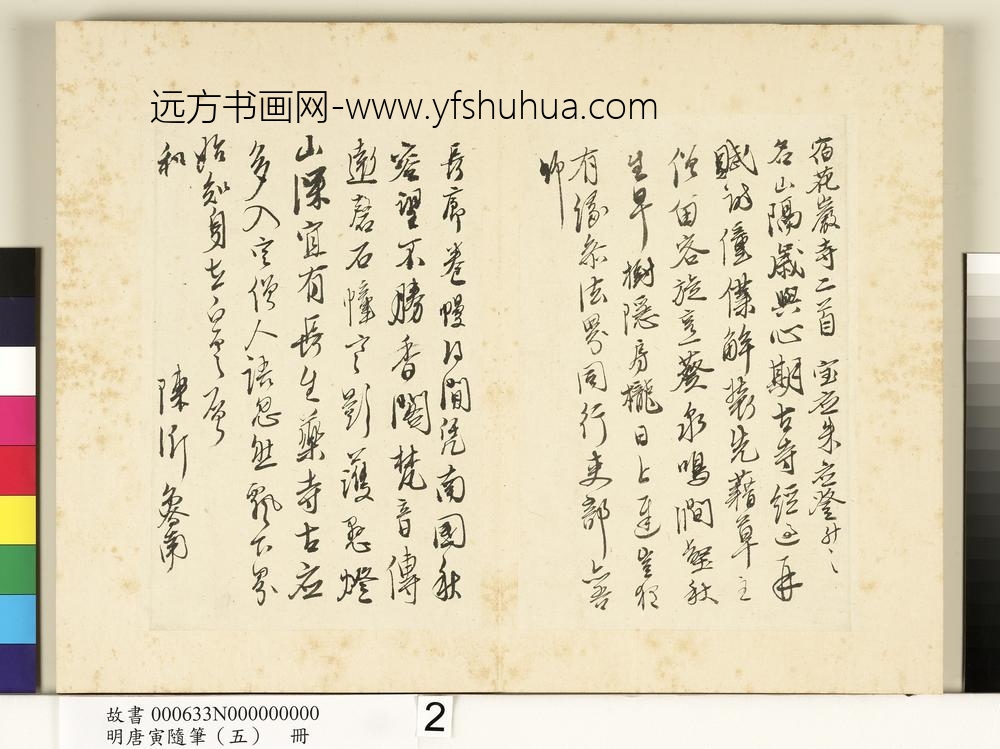 远方书画网-www.yfshuhua.com
宿花巖寺二首 寶應朱應登升之
名山隔歲與心期古寺經過再
賦詩僮僕解裝先藉草主
僧留客旋烹葵泉鳴澗壑秋
生早樹隱房櫳日上遲豈獨
有緣參法界同行吏部亦吾
師
長廊卷幔日閒凭南國秋
容望不勝香閣梵音傳
遠磬石幢影護懸燈
山深宜有長生藥寺古應
多入定僧人語忽然飄下界
始知身在白雲層
和 陳沂魯南
故書 000633N000000000
明唐寅隨筆（五） 冊
2